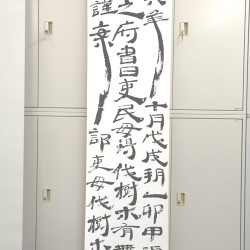 六年七月戊戌朔乙卯甲
之府書曰吏民毋得伐樹木有無
謹案部吏毋伐樹木